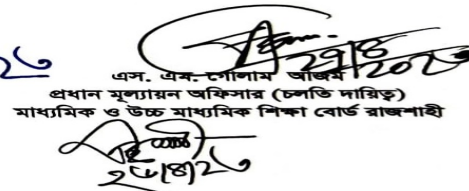 ২৯/৪/২০২৬
এস. এম. গোলাম আজম
প্রধান মূল্যায়ন অফিসার (চলতি দায়িত্ব)
মাধ্যমিক ও উচ্চ মাধ্যমিক শিক্ষা বোর্ড রাজশাহী